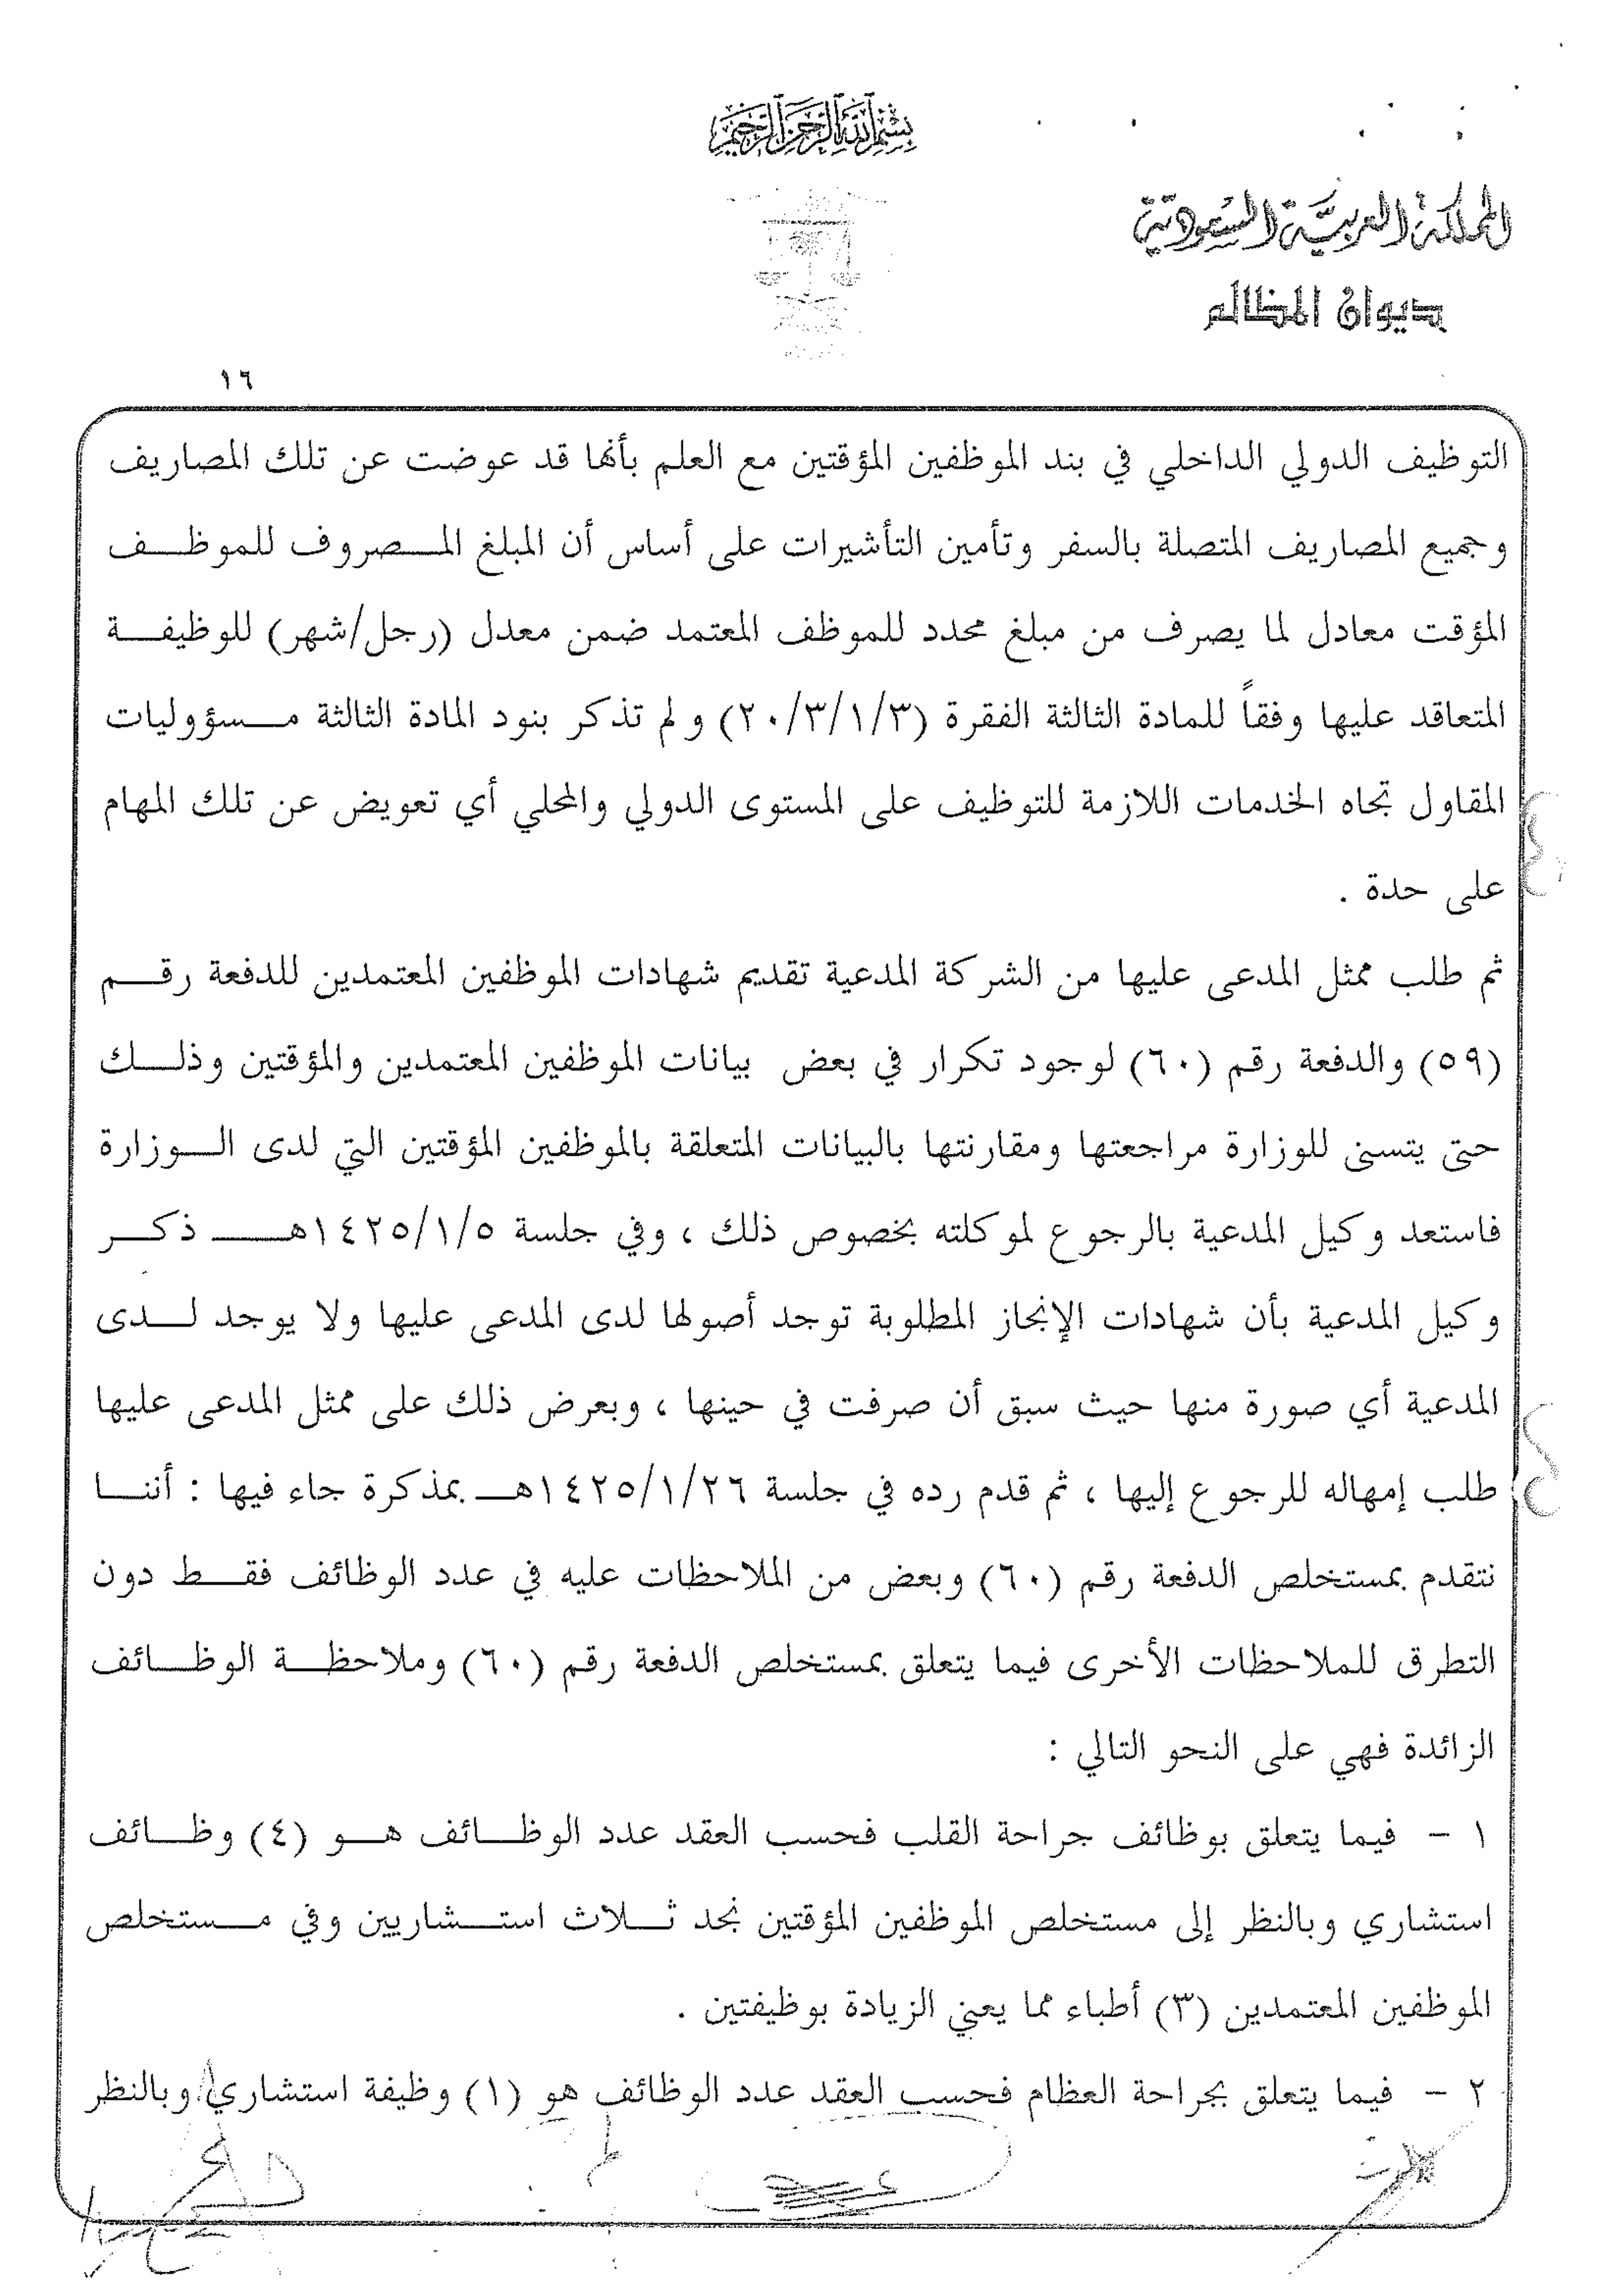 بسم الله الرحمن الرحيم
المملكة العربية السعودية
ديوان المظالم
١٦
التوظيف الدولي الداخلي في بند الموظفين المؤقتين مع العلم بأنها قد عوضت عن تلك المصاريف
وجميع المصاريف المتصلة بالسفر وتأمين التأشيرات على أساس أن المبلغ المصروف للموظف
المؤقت معادل لما يصرف من مبلغ محدد للموظف المعتمد ضمن معدل (رجل/شهر) للوظيفة
المتعاقد عليها وفقاً للمادة الثالثة الفقرة (٢٠/٣/١/٣) ولم تذكر بنود المادة الثالثة مسؤوليات
المقاول تجاه الخدمات اللازمة للتوظيف على المستوى الدولي والمحلي أي تعويض عن تلك المهام
على حدة .
ثم طلب ممثل المدعى عليها من الشركة المدعية تقديم شهادات الموظفين المعتمدين للدفعة رقم
(٥٩) والدفعة رقم (٦٠) لوجود تكرار في بعض بيانات الموظفين المعتمدين والمؤقتين وذلك
حتى يتسنى للوزارة مراجعتها ومقارنتها بالبيانات المتعلقة بالموظفين المؤقتين التي لدى الوزارة
فاستعد وكيل المدعية بالرجوع لموكلته بخصوص ذلك ، وفي جلسة ١٤٢٥/١/٥هـ ذكر
وكيل المدعية بأن شهادات الإنجاز المطلوبة توجد أصولها لدى المدعى عليها ولا يوجد لدى
المدعية أي صورة منها حيث سبق أن صرفت في حينها ، وبعرض ذلك على ممثل المدعى عليها
طلب إمهاله للرجوع إليها ، ثم قدم رده في جلسة ١٤٢٥/١/٢٦هـ بمذكرة جاء فيها : أننا
نتقدم بمستخلص الدفعة رقم (٦٠) وبعض من الملاحظات عليه في عدد الوظائف فقط دون
التطرق للملاحظات الأخرى فيما يتعلق بمستخلص الدفعة رقم (٦٠) وملاحظة الوظائف
الزائدة فهي على النحو التالي :
١ - فيما يتعلق بوظائف جراحة القلب فحسب العقد عدد الوظائف هو (٤) وظائف
استشاري وبالنظر إلى مستخلص الموظفين المؤقتين نجد ثلاث استشاريين وفي مستخلص
الموظفين المعتمدين (٣) أطباء مما يعني الزيادة بوظيفتين .
٢ - فيما يتعلق بجراحة العظام فحسب العقد عدد الوظائف هو (١) وظيفة استشاري وبالنظر